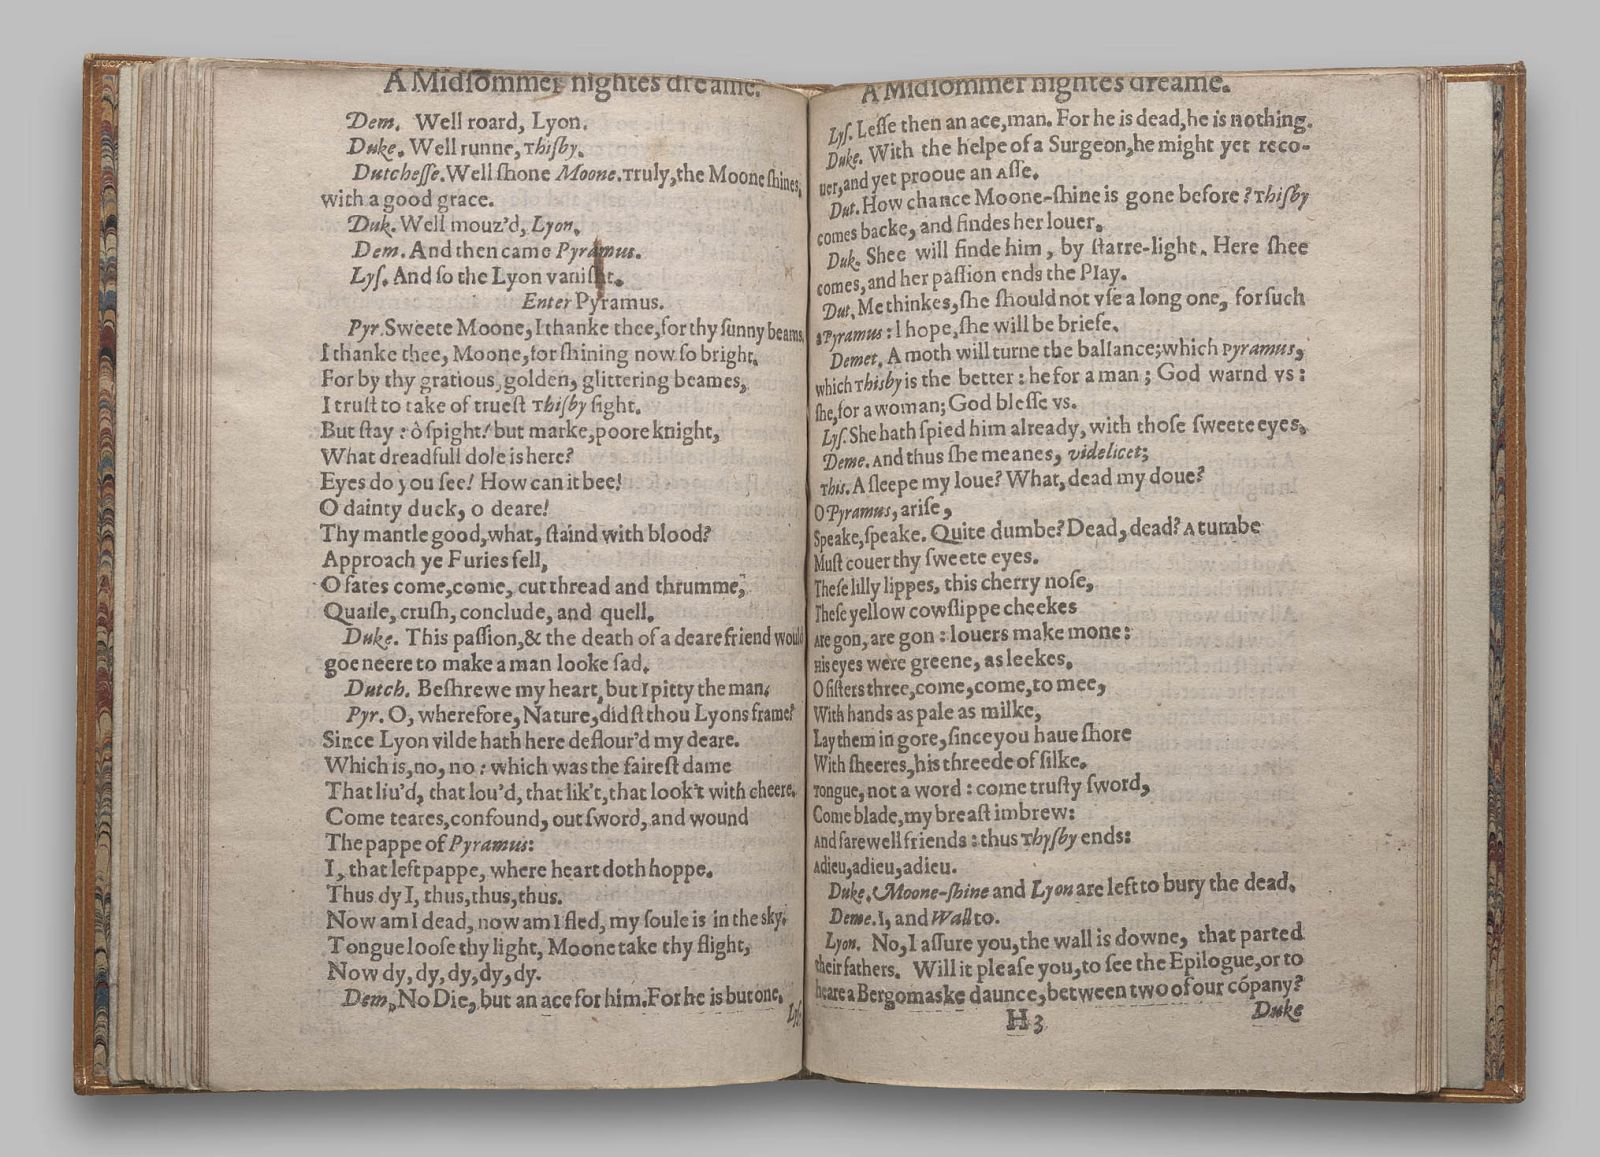 A Midſommer nightes dreame.
Dem. Well roard, Lyon.
Duke. Well runne, Thiſby.
Dutcheſſe. Well ſhone Moone. Truly, the Moone ſhines,
with a good grace.
Duk. Well mouz'd, Lyon.
Dem. And then came Pyramus.
Lyſ. And ſo the Lyon vaniſht.
Enter Pyramus.
Pyr. Sweete Moone, I thanke thee, for thy ſunny beams,
I thanke thee, Moone, for ſhining now ſo bright.
For by thy gratious, golden, glittering beames,
I truſt to take of trueſt Thiſby ſight.
But ſtay: ô ſpight! but marke, poore knight,
What dreadfull dole is here?
Eyes do you ſee! How can it bee!
O dainty duck, o deare!
Thy mantle good, what, ſtaind with blood?
Approach ye Furies fell,
O fates come, come, cut thread and thrumme,
Quaile, cruſh, conclude, and quell.
Duke. This paſſion, & the death of a deare friend would
goe neere to make a man looke ſad.
Dutch. Beſhrewe my heart, but I pitty the man.
Pyr. O, wherefore, Nature, didſt thou Lyons frame?
Since Lyon vilde hath here deflour'd my deare.
Which is, no, no: which was the faireſt dame
That liu'd, that lou'd, that lik't, that look't with cheere.
Come teares, confound, out ſword, and wound
The pappe of Pyramus:
I, that left pappe, where heart doth hoppe.
Thus dy I, thus, thus, thus.
Now am I dead, now am I fled, my ſoule is in the sky.
Tongue looſe thy light, Moone take thy flight,
Now dy, dy, dy, dy, dy.
Dem. No Die, but an ace for him. For he is but one.
Lyſ.
A Midſommer nightes dreame.
Lyſ. Leſſe then an ace, man. For he is dead, he is nothing.
Duke. With the helpe of a Surgeon, he might yet reco-
uer, and yet prooue an Aſſe.
Dut. How chance Moone-ſhine is gone before? Thiſby
comes backe, and findes her louer.
Duk. Shee will finde him, by ſtarre-light. Here ſhee
comes, and her paſſion ends the Play.
Dut. Me thinkes, ſhe ſhould not vſe a long one, for ſuch
a Pyramus: I hope, ſhe will be briefe.
Demet. A moth will turne the ballance; which Pyramus,
which Thisby is the better: he for a man; God warnd vs:
ſhe, for a woman; God bleſſe vs.
Lyſ. She hath ſpied him already, with thoſe ſweete eyes.
Deme. And thus ſhe meanes, videlicet;
This. A ſleepe my loue? What, dead my doue?
O Pyramus, ariſe,
Speake, ſpeake. Quite dumbe? Dead, dead? A tumbe
Muſt couer thy ſweete eyes.
Theſe lilly lippes, this cherry noſe,
Theſe yellow cowſlippe cheekes
Are gon, are gon: louers make mone:
His eyes were greene, as leekes.
O ſiſters three, come, come, to mee,
With hands as pale as milke,
Lay them in gore, ſince you haue ſhore
With ſheeres, his threede of ſilke.
Tongue, not a word: come truſty ſword,
Come blade, my breaſt imbrew:
And farewell friends: thus Thyſby ends:
Adieu, adieu, adieu.
Duke. Moone-ſhine and Lyon are left to bury the dead.
Deme. I, and Wall to.
Lyon. No, I aſſure you, the wall is downe, that parted
their fathers. Will it pleaſe you, to ſee the Epilogue, or to
heare a Bergomaske daunce, between two of our cópany?
H3 Duke